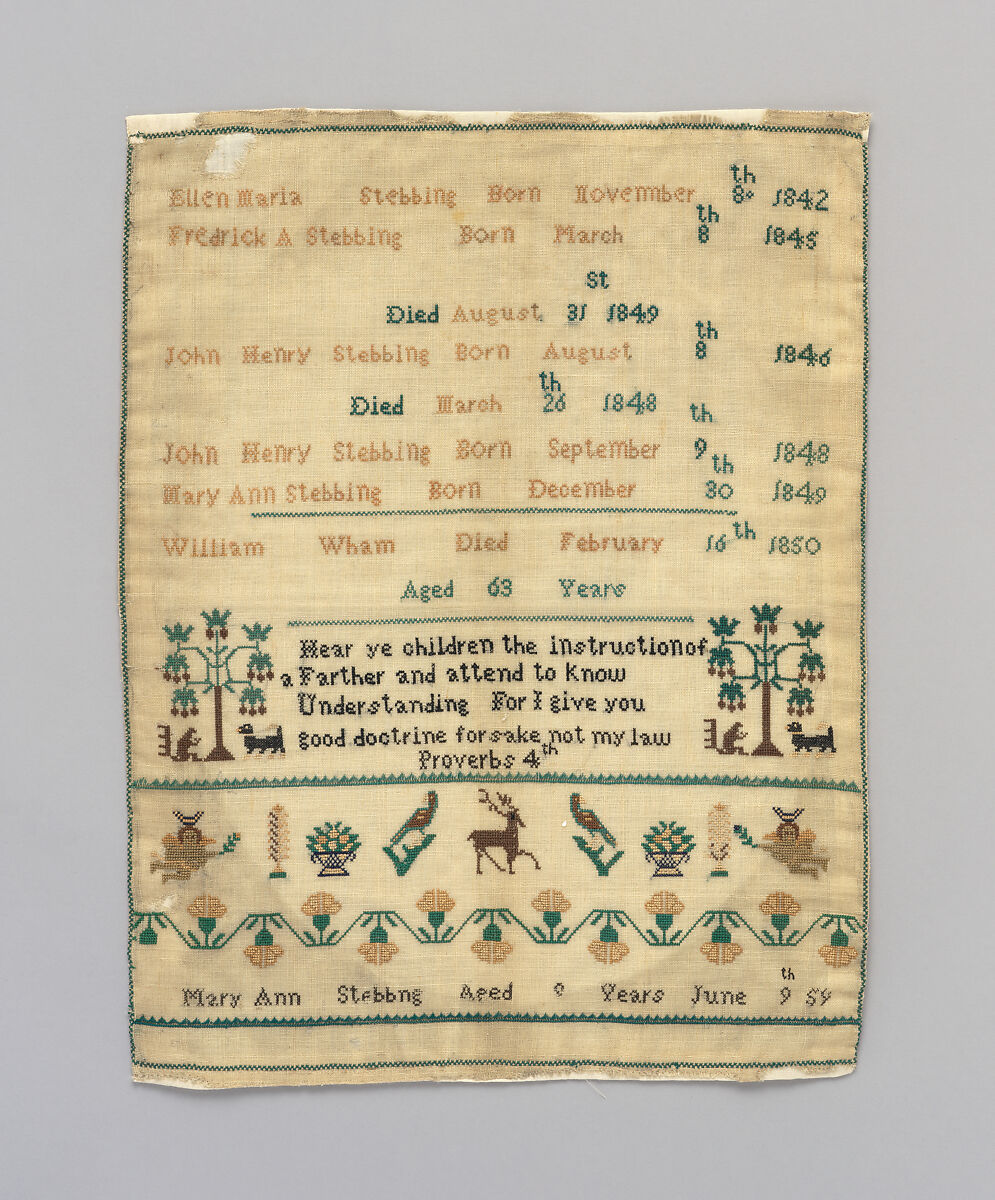 Ellen Maria Stebbing Born November 8th 1842
Fredrick A Stebbing Born March 8th 1845
Died August 31st 1849
John Henry Stebbing Born August 8th 1846
Died March 26th 1848
John Henry Stebbing Born September 9th 1848
Mary Ann Stebbing Born December 30th 1849
William Wham Died February 16th 1850
Aged 63 Years
Hear ye children the instruction of
a Farther and attend to know
Understanding For I give you
good doctrine forsake not my law
Proverbs 4th
Mary Ann Stebbng Aged 9 Years June 9th 59